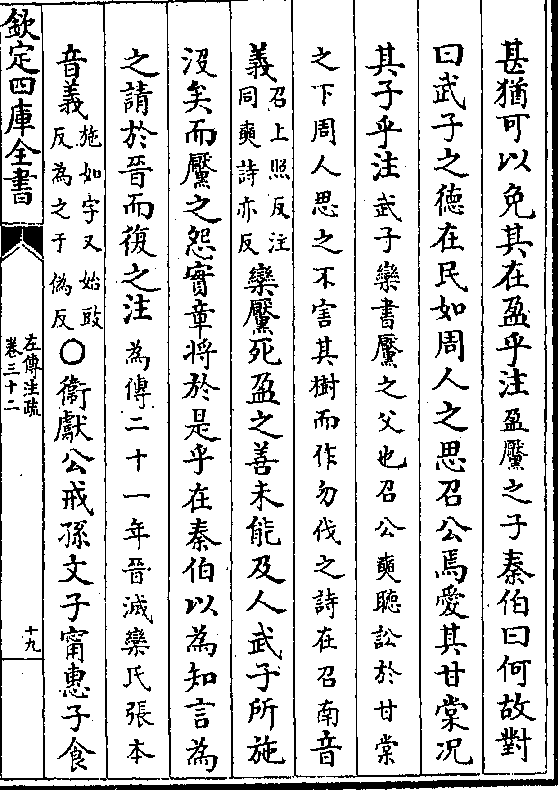 甚猶可以免其在盈乎注盈黶之子秦伯曰何故對
曰武子之德在民如周人之思召公焉愛其甘棠况
其子乎注武子欒書黶之父也召公奭聽訟於甘棠
之下周人思之不害其樹而作勿伐之詩在召南音
義召上照反注同奭詩亦反欒黶死盈之善未能及人武子所施
没矣而黶之怨實章將於是乎在秦伯以為知言為
之請於晉而復之注為傳二十一年晉滅欒氏張本
音義施如字又始豉反為之于偽反〇衞獻公戒孫文子甯惠子食
欽定四庫全書
左傳注疏
卷三十二
十九